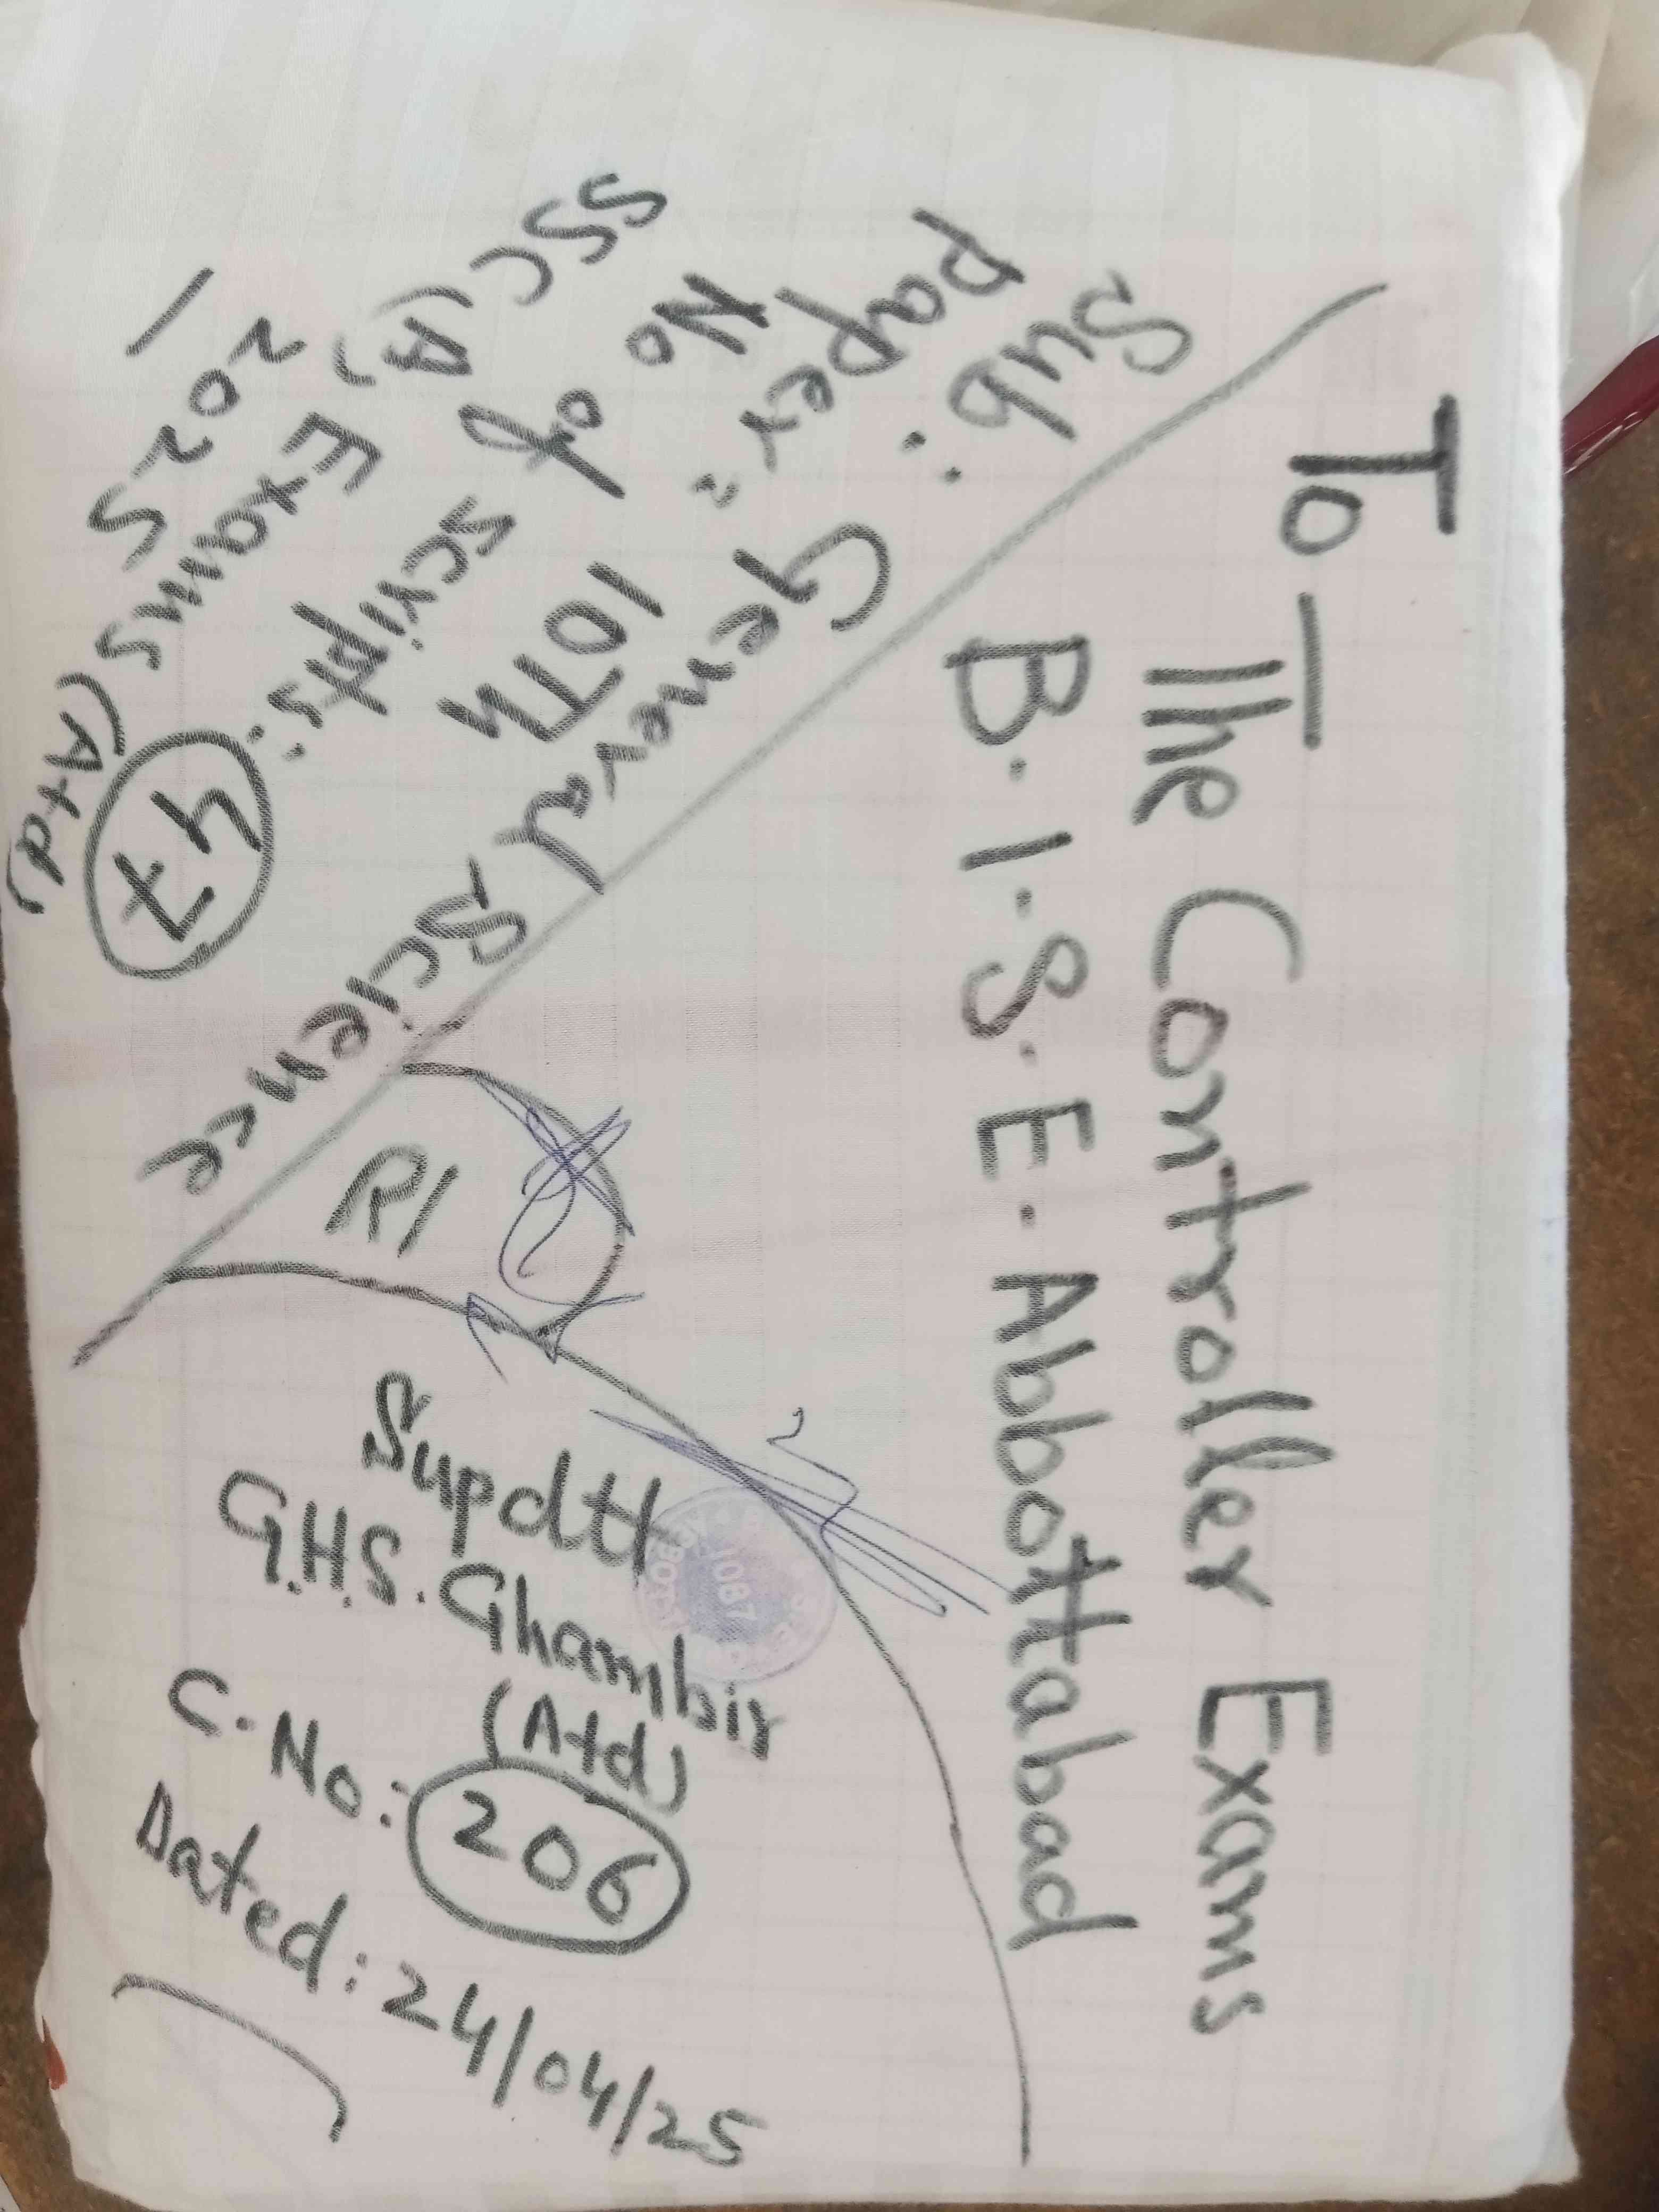 To —
The Controller Exams
B.I.S.E. Abbottabad
Sub: General Science
paper: 10Th
No of scripts: 47
SSC (A) Exams (Atd)
2025
R1
Supdtt
G.H.S. Ghambir
(Atd)
C. No: 206
Dated: 24/04/25
1087